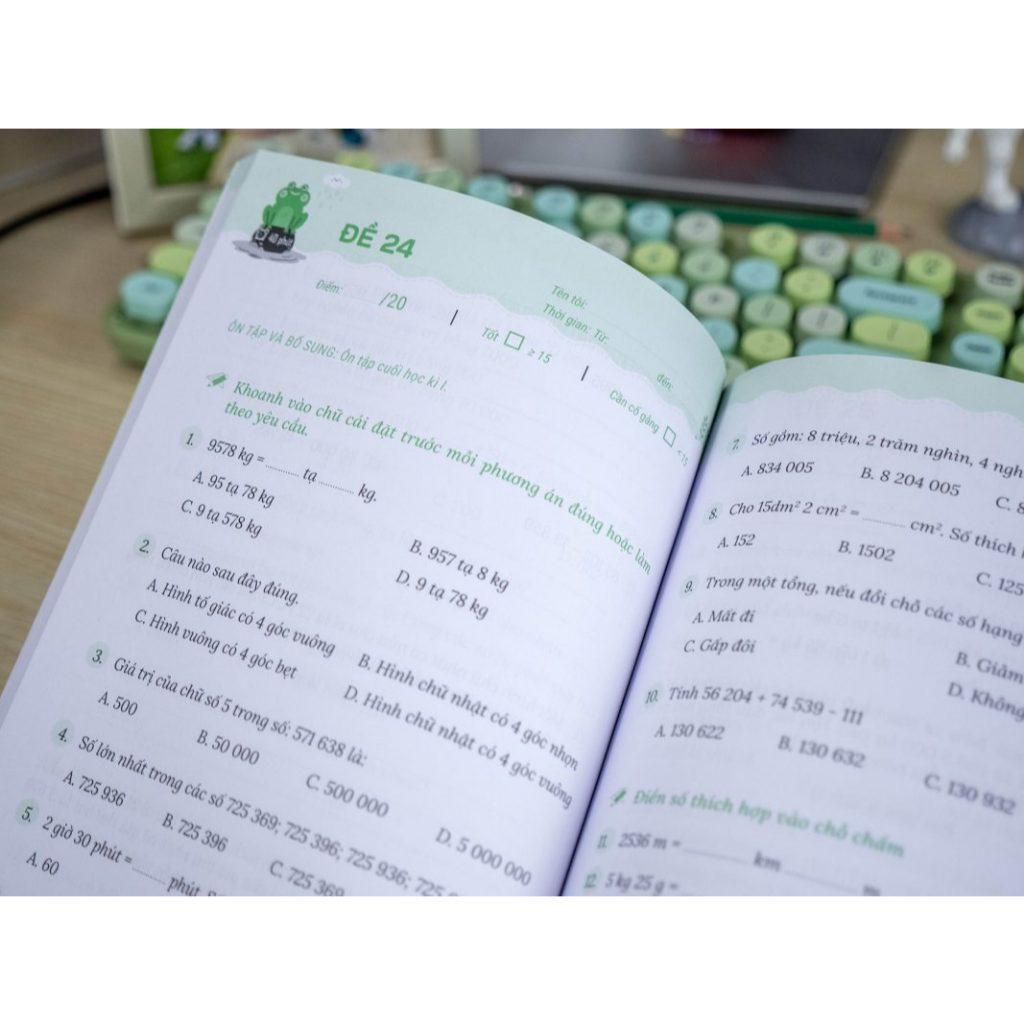 ĐỀ 24
40 phút
Điểm: /20
Tốt ≥ 15
Tên tôi:
Thời gian: Từ: đến:
Cần cố gắng < 15
ÔN TẬP VÀ BỔ SUNG: Ôn tập cuối học kì I.
Khoanh vào chữ cái đặt trước mỗi phương án đúng hoặc làm
theo yêu cầu.
1. 9578 kg = ........... tạ ........... kg.
A. 95 tạ 78 kg
B. 957 tạ 8 kg
C. 9 tạ 578 kg
D. 9 tạ 78 kg
2. Câu nào sau đây đúng.
A. Hình tố giác có 4 góc vuông
B. Hình chữ nhật có 4 góc nhọn
C. Hình vuông có 4 góc bẹt
D. Hình chữ nhật có 4 góc vuông
3. Giá trị của chữ số 5 trong số: 571 638 là:
A. 500
B. 50 000
C. 500 000
D. 5 000 000
4. Số lớn nhất trong các số 725 369; 725 396; 725 936;
A. 725 936
B. 725 396
C. 725 369
5. 2 giờ 30 phút = ........... phút.
A. 60
7. Số gồm: 8 triệu, 2 trăm nghìn, 4 ngh
A. 834 005
B. 8 204 005
C. 8
8. Cho 15dm² 2 cm² = ........... cm². Số thích
A. 152
B. 1502
C. 125
9. Trong một tổng, nếu đổi chỗ các số hạng
A. Mất đi
B. Giảm
C. Gấp đôi
D. Không
10. Tính 56 204 + 74 539 – 111
A. 130 622
B. 130 632
C. 130 932
Điền số thích hợp vào chỗ chấm
11. 2536 m = ........... km ........... m
12. 5 kg 25 g = ...........